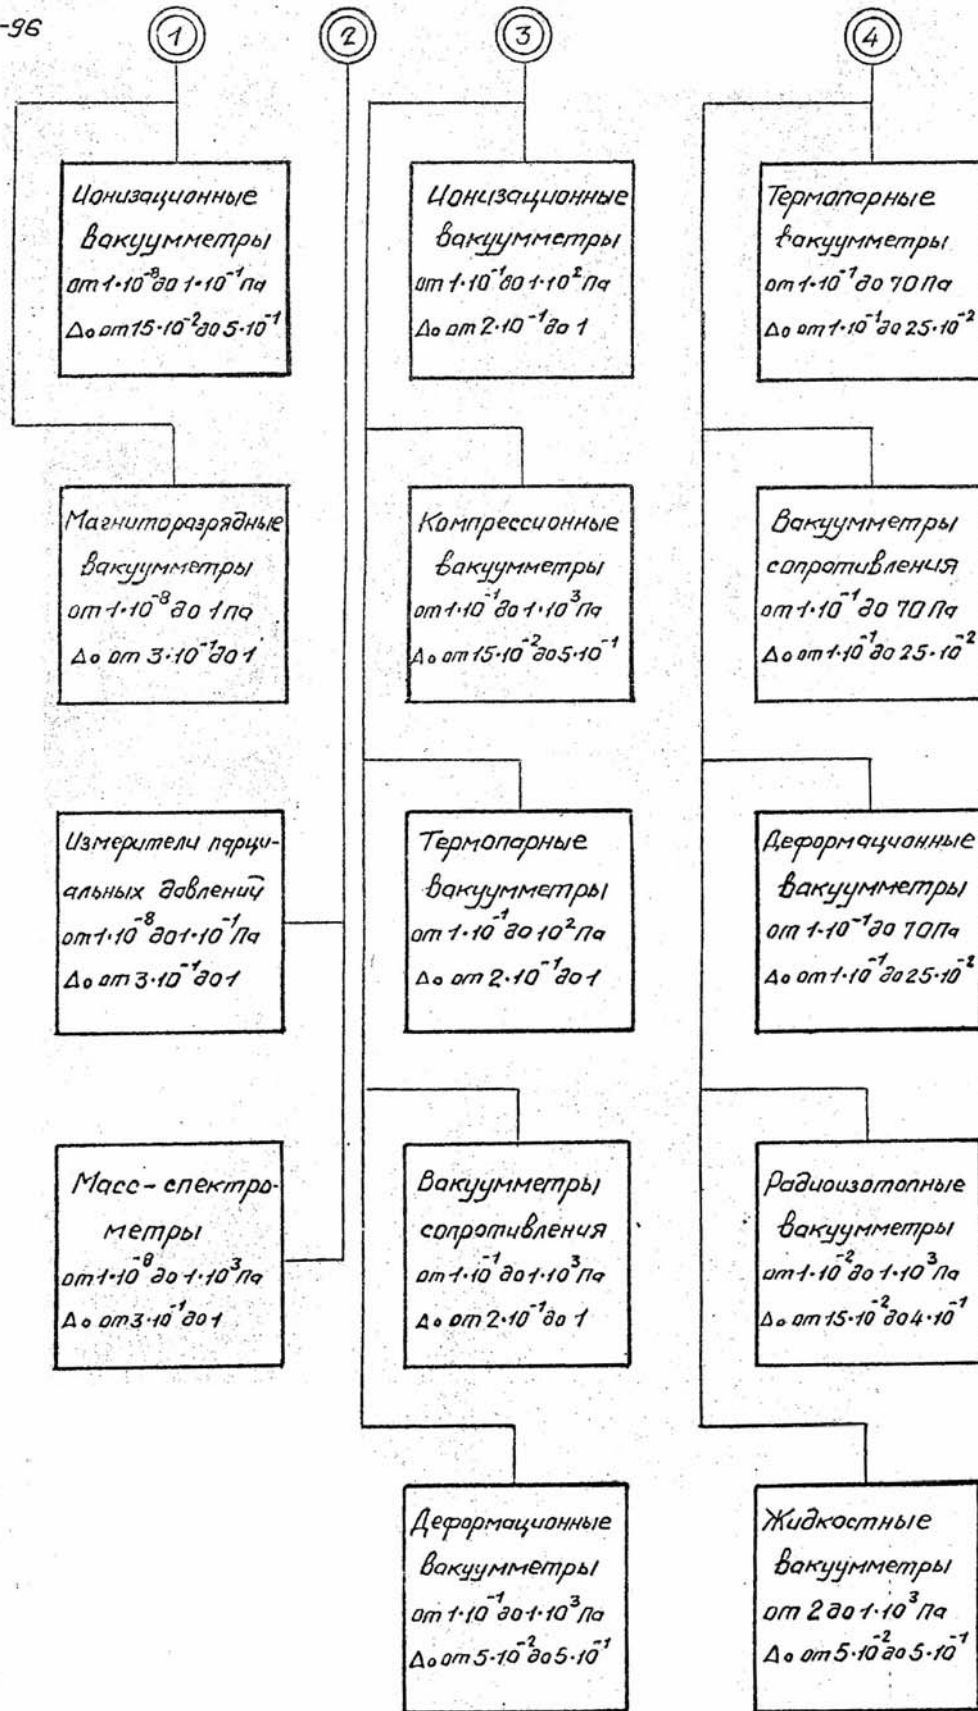 -96
1
2
3
4
Ионизационные
вакуумметры
от 1·10⁻⁸ до 1·10⁻¹ Па
Δ₀ от 15·10⁻² до 5·10⁻¹
Магниторазрядные
вакуумметры
от 1·10⁻⁸ до 1 Па
Δ₀ от 3·10⁻¹ до 1
Измерители парци-
альных давлений
от 1·10⁻⁸ до 1·10⁻¹ Па
Δ₀ от 3·10⁻¹ до 1
Масс-спектро-
метры
от 1·10⁻⁸ до 1·10³ Па
Δ₀ от 3·10⁻¹ до 1
Ионизационные
вакуумметры
от 1·10⁻¹ до 1·10² Па
Δ₀ от 2·10⁻¹ до 1
Компрессионные
вакуумметры
от 1·10⁻¹ до 1·10³ Па
Δ₀ от 15·10⁻² до 5·10⁻¹
Термопарные
вакуумметры
от 1·10⁻¹ до 10² Па
Δ₀ от 2·10⁻¹ до 1
Вакуумметры
сопротивления
от 1·10⁻¹ до 1·10³ Па
Δ₀ от 2·10⁻¹ до 1
Деформационные
вакуумметры
от 1·10⁻¹ до 1·10³ Па
Δ₀ от 5·10⁻² до 5·10⁻¹
Термопарные
вакуумметры
от 1·10⁻¹ до 70 Па
Δ₀ от 1·10⁻¹ до 25·10⁻²
Вакуумметры
сопротивления
от 1·10⁻¹ до 70 Па
Δ₀ от 1·10⁻¹ до 25·10⁻²
Деформационные
вакуумметры
от 1·10⁻¹ до 70 Па
Δ₀ от 1·10⁻¹ до 25·10⁻²
Радиоизотопные
вакуумметры
от 1·10⁻² до 1·10³ Па
Δ₀ от 15·10⁻² до 4·10⁻¹
Жидкостные
вакуумметры
от 2 до 1·10³ Па
Δ₀ от 5·10⁻² до 5·10⁻¹